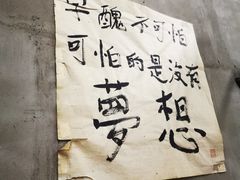 醜不可怕
可怕的是沒有
夢想